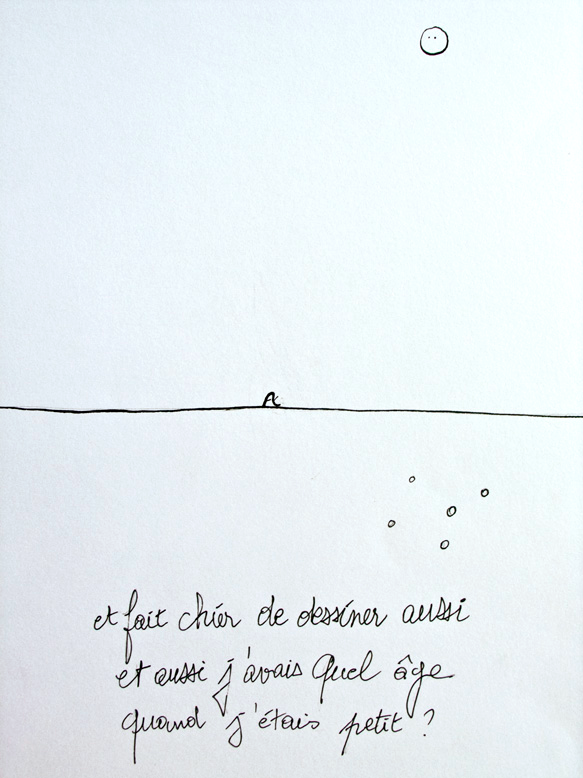 et fait chier de dessiner aussi
et aussi j'avais quel âge
quand j'étais petit ?